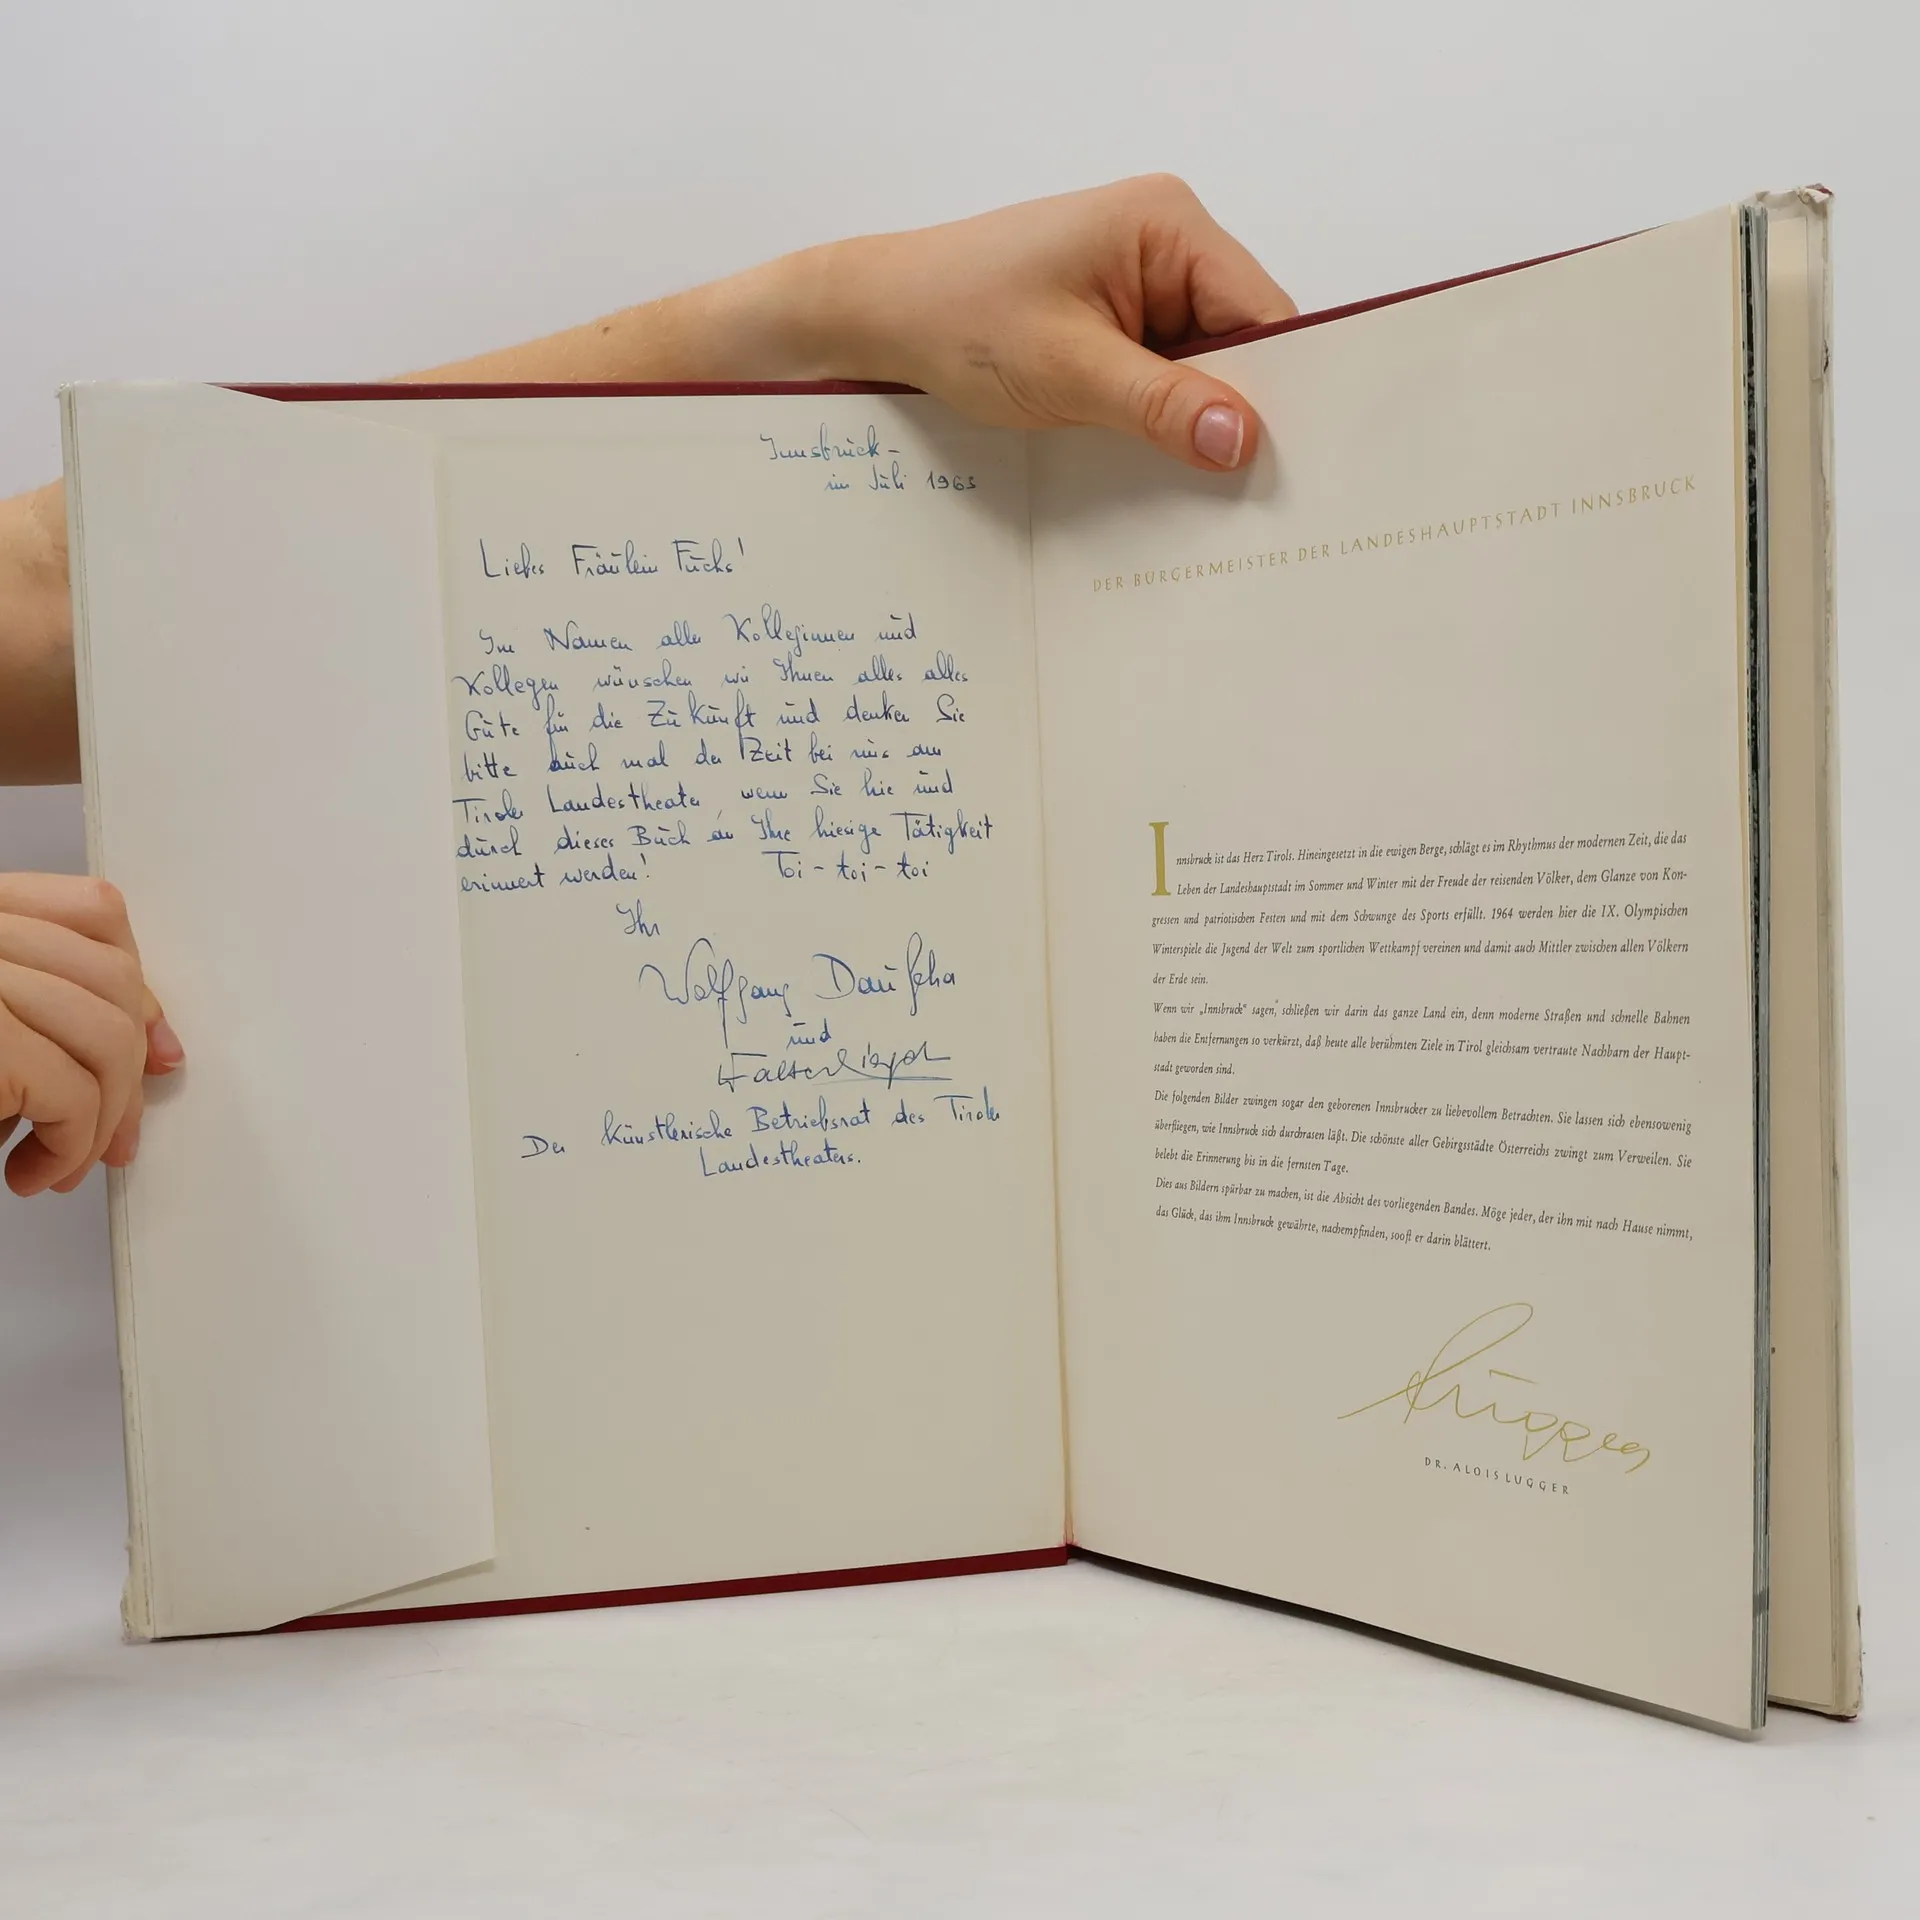 Innsbruck –
im Juli 1963
Liebes Fräulein Fuchs!
Im Namen aller Kolleginnen und
Kollegen wünschen wir Ihnen alles alles
Gute für die Zukunft und denken Sie
bitte auch mal der Zeit bei uns am
Tiroler Landestheater, wenn Sie hie und
durch dieses Buch an Ihre hiesige Tätigkeit
erinnert werden! Toi – toi – toi
Ihr
Wolfgang
und
Walter
Der Künstlerische Betriebsrat des Tiroler
Landestheaters.
DER BÜRGERMEISTER DER LANDESHAUPTSTADT INNSBRUCK
Innsbruck ist das Herz Tirols. Hineingesetzt in die ewigen Berge, schlägt es im Rhythmus der modernen Zeit, die das
Leben der Landeshauptstadt im Sommer und Winter mit der Freude der reisenden Völker, dem Glanze von Kon-
gressen und patriotischen Festen und mit dem Schwunge des Sports erfüllt. 1964 werden hier die IX. Olympischen
Winterspiele die Jugend der Welt zum sportlichen Wettkampf vereinen und damit auch Mittler zwischen allen Völkern
der Erde sein.
Wenn wir „Innsbruck“ sagen, schließen wir darin das ganze Land ein, denn moderne Straßen und schnelle Bahnen
haben die Entfernungen so verkürzt, daß heute alle berühmten Ziele in Tirol gleichsam vertraute Nachbarn der Haupt-
stadt geworden sind.
Die folgenden Bilder zwingen sogar den geborenen Innsbrucker zu liebevollem Betrachten. Sie lassen sich ebensowenig
überfliegen, wie Innsbruck sich durchrasen läßt. Die schönste aller Gebirgsstädte Österreichs zwingt zum Verweilen. Sie
belebt die Erinnerung bis in die fernsten Tage.
Dies aus Bildern spürbar zu machen, ist die Absicht des vorliegenden Bandes. Möge jeder, der ihn mit nach Hause nimmt,
das Glück, das ihm Innsbruck gewährte, nachempfinden, sooft er darin blättert.
Lugger
DR. ALOIS LUGGER